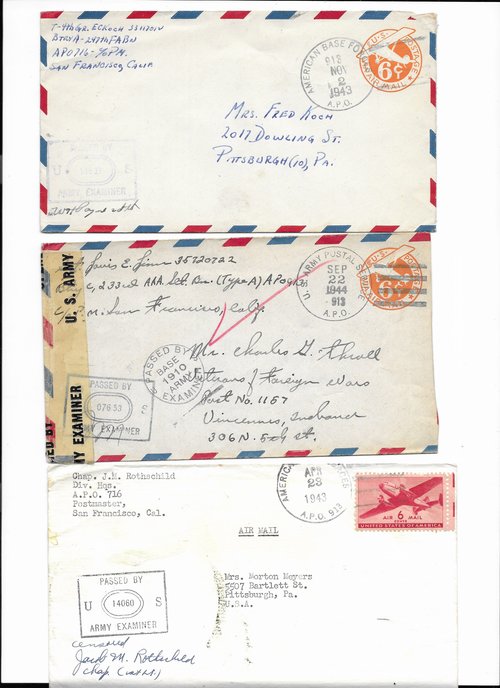 T-4thGr. EC KOCH 33117014
BTRY A-247thFABN
APO 716-%P.M.
SAN FRANCISCO, CALIF
AMERICAN BASE FORCES
913
NOV
2
1943
A.P.O.
U.S. POSTAGE
6¢
VIA AIR MAIL
MRS. FRED KOCH
2017 DOWLING ST.
PITTSBURGH (10), PA.
PASSED BY
U S
ARMY EXAMINER
Louis E. 35720722
233rd AAA. Slt. Bn. (Type A) APO
San Francisco, Calif.
U.S. ARMY POSTAL SERVICE
SEP
22
1944
913
A.P.O.
U.S. ARMY
PASSED BY
BASE
1910
ARMY
EXAMINER
Mr. Charles G. Thrall
Veterans of Foreign Wars
Post No. 1157
Vincennes, Indiana
306 N. 5th St.
PASSED BY
U 07653 S
ARMY EXAMINER
MY EXAMINER
ED BY
Chap. J.M. Rothschild
Div. Hqs.
A.P.O. 716
Postmaster,
San Francisco, Cal.
AMERICAN
APR
23
1943
A.P.O. 913
AIR 6 MAIL
CENTS
UNITED STATES OF AMERICA
AIR MAIL
Mrs. Morton Meyers
5507 Bartlett St.
Pittsburgh, Pa.
U.S.A.
PASSED BY
U 14060 S
ARMY EXAMINER
censored
Jacob M. Rothschild
Chap.